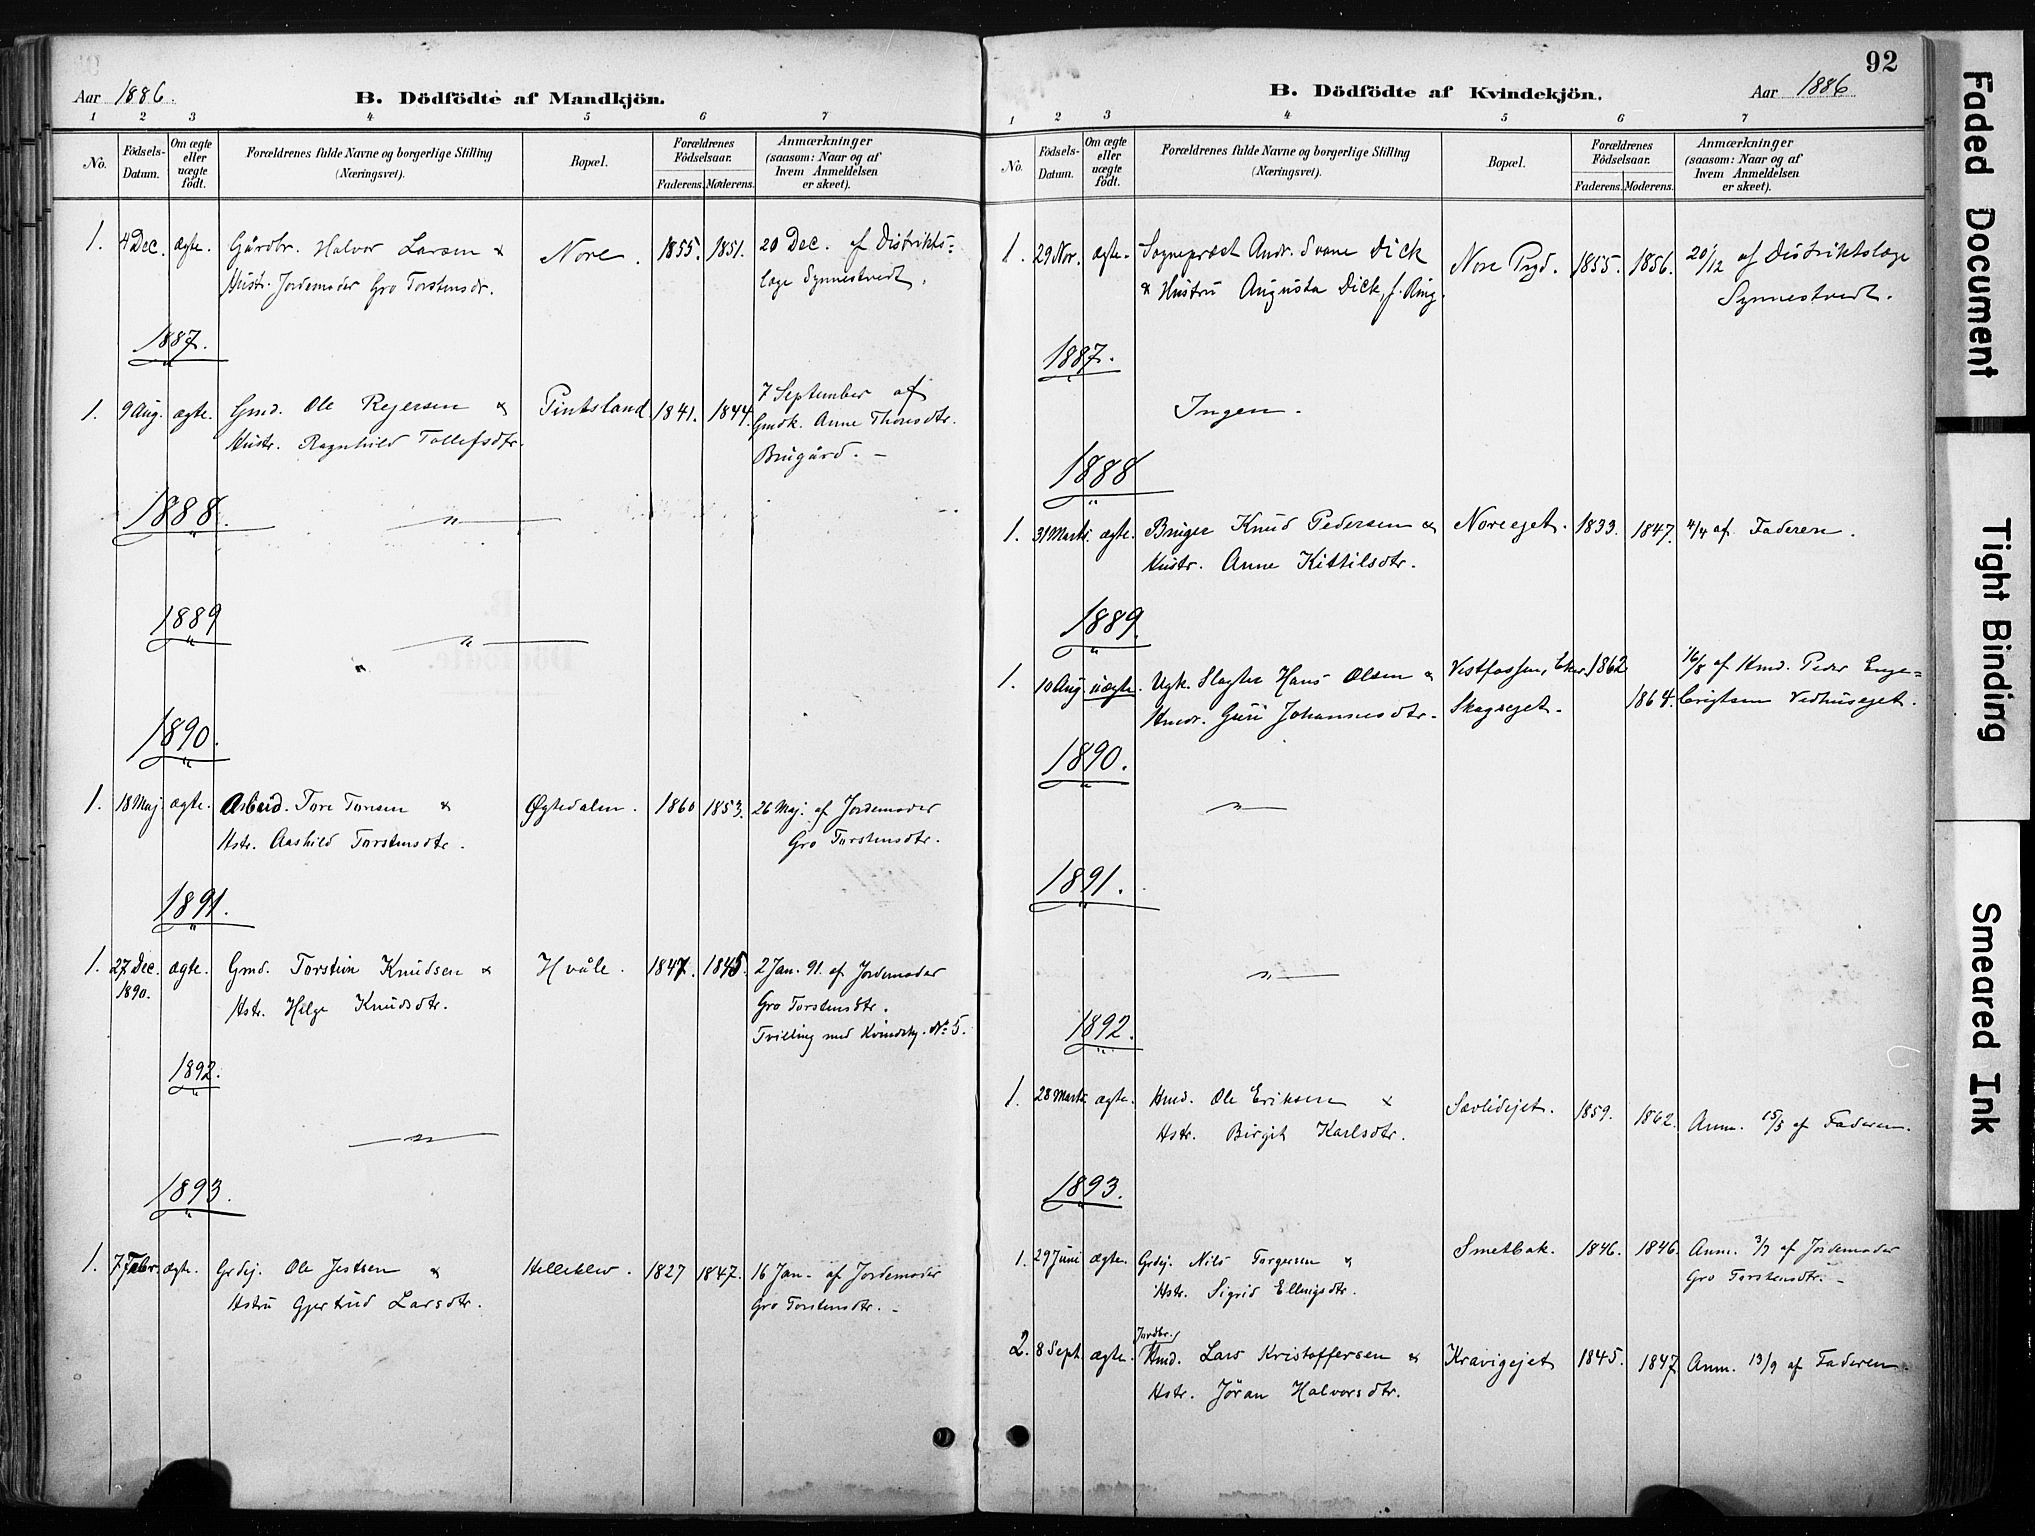 Aar 1886.
B. Dödfödte af Mandkjön.
1 2 3 4 5 6 7
No. Födsels-Datum. Om ægte eller uægte födt. Forældrenes fulde Navne og borgerlige Stilling (Næringsvei). Bopæl. Forældrenes Födselsaar. Faderens. Moderens. Anmærkninger (saasom: Naar og af hvem Anmeldelsen er skeet).
1. 4 Dec. ægte. Gårdbr. Halvor Larsen & Nore. 1855. 1851. 20 Dec. af Distrikts-
Hustr. Jordemoder Gro Torstensdr. læge Synnestvedt.
1887.
1. 9 Aug. ægte. Gmd. Ole Rejersen & Pintsland. 1841. 1844. 7 September af
Hustr. Ragnhild Tollefsdtr. Gmdk. Anne Thorsdtr.
Brugård. –
1888.
"
1889
"
1890.
1. 18 Maj. ægte. Arbeid. Tore Tonsen & Øgtedalen. 1860 1853. 26 Maj. af Jordemoder
Hstr. Aashild Torstensdtr. Gro Torstensdtr.
1891.
1. 27 Dec. 1890. ægte. Gmd. Torstein Knudsen & Hvåle. 1847. 1845. 2 Jan. 91. af Jordemoder
Hstr. Helge Knudsdtr. Gro Torstensdtr.
Tvilling med Kvindekj. No 5.
1892.
"
1893.
1. 7 Febr. ægte. Grdej. Ole Jestsen & Helleklev. 1827 1847. 16 Jan. af Jordemoder
Hstru Gjertrud Larsdtr. Gro Torstensdtr. –
92
B. Dödfödte af Kvindekjön. Aar 1886
1 2 3 4 5 6 7
No. Födsels-Datum. Om ægte eller uægte födt. Forældrenes fulde Navne og borgerlige Stilling (Næringsvei). Bopæl. Forældrenes Födselsaar. Faderens. Moderens. Anmærkninger (saasom: Naar og af hvem Anmeldelsen er skeet).
1. 29 Nov. ægte. Sognepræst Andr. Svane Dick Nore Prgd. 1855. 1856. 20/12 af Distriktslæge
& Hustru Augusta Dick, f. Ring. Synnestvedt.
1887.
Ingen.
1888
1. 31 Marts. ægte. Bruger Knud Pedersen & Noreejet. 1833. 1847. 4/4 af Faderen.
Hustr. Anne Kittilsdtr.
1889.
1. 10 Aug. uægte. Ugk. Slagter Hans Olsen & Vestfossen, Eker. 1862 16/8 af Hmd. Peder Enge-
Hmdr. Guri Johannesdtr. Skagsejet. 1864. brigtsen Vedhusejet.
1890.
"
1891.
"
1892.
1. 28 Marts. ægte. Hmd. Ole Eriksen & Sævlidejet. 1859. 1862. Anm. 15/5 af Faderen.
Hstr. Birgit Karlsdtr.
1893.
1. 29 Juni ægte. Grdej. Nils Torgersen & Smetbak. 1846. 1846. Anm. 3/7 af Jordemoder
Hstr. Sigrid Ellingsdtr. Gro Torstensdtr. –
Jordbr.
2. 8 Sept. ægte. Hmd. Lars Kristoffersen & Kravigejet 1845. 1847 Anm. 13/9 af Faderen.
Hstr. Jöran Halvorsdtr.
Faded Document
Tight Binding
Smeared Ink